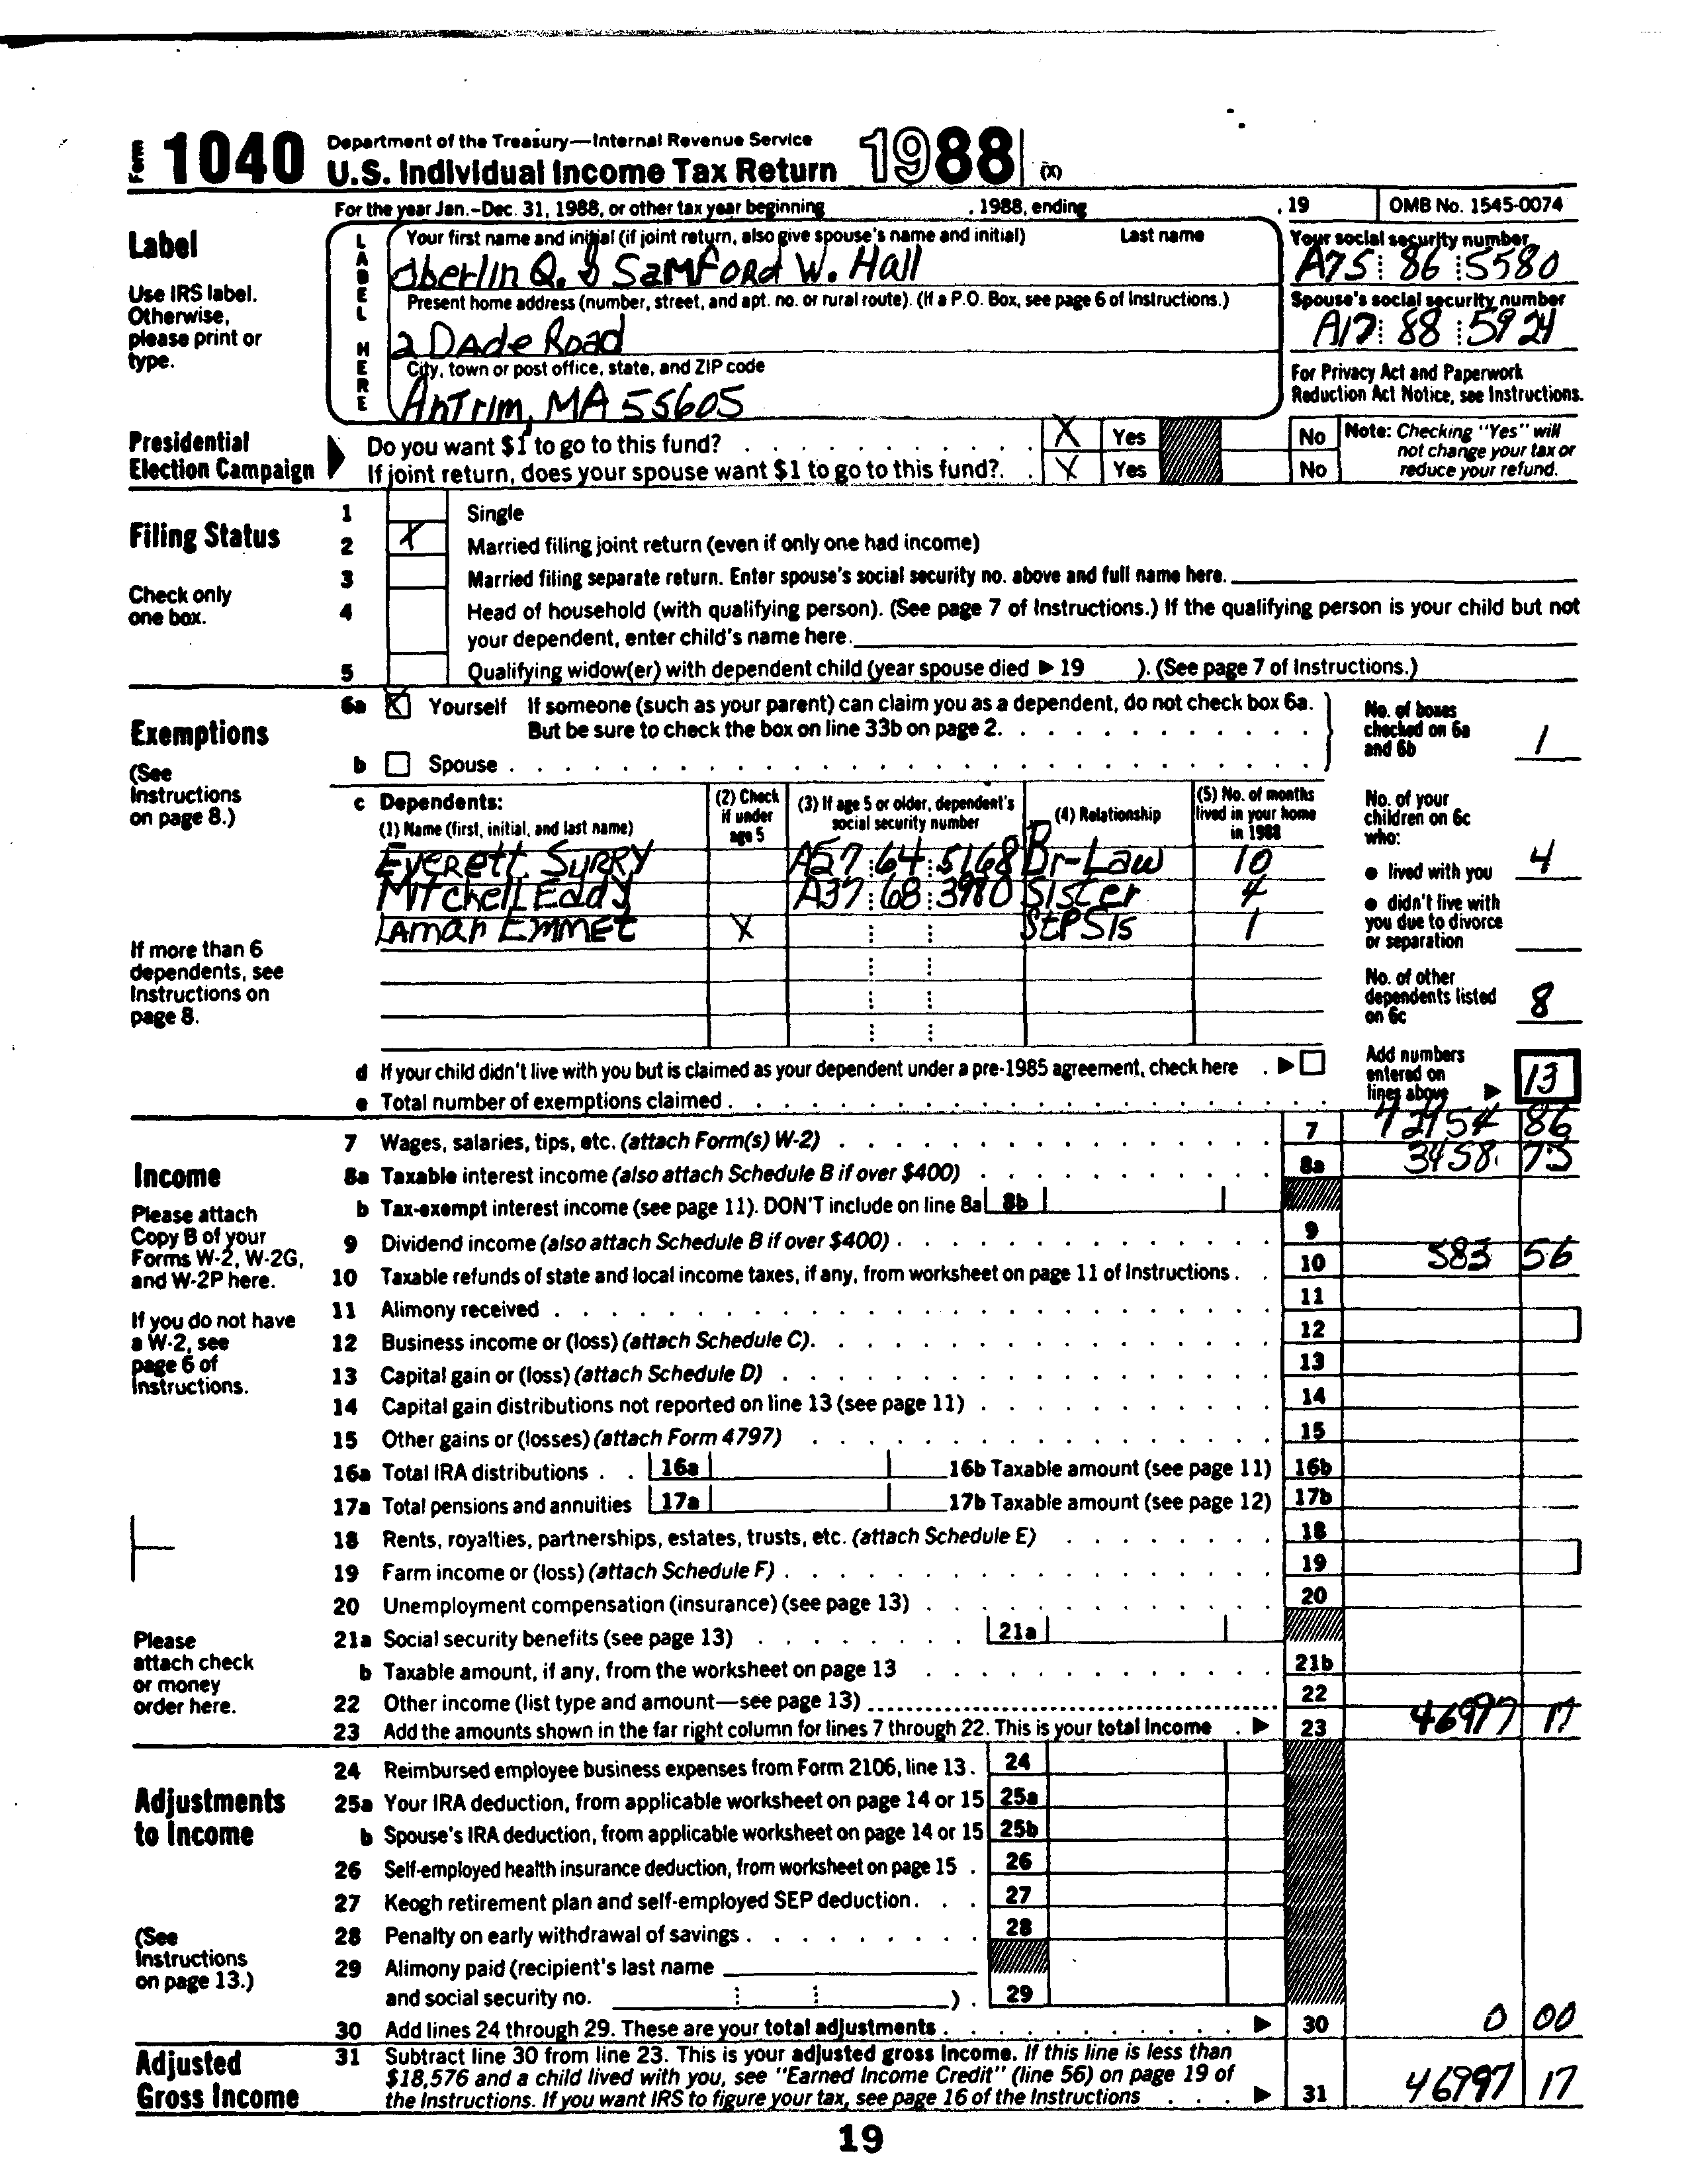 Form 1040 Department of the Treasury—Internal Revenue Service
U.S. Individual Income Tax Return 1988 (X)
For the year Jan.–Dec. 31, 1988, or other tax year beginning , 1988, ending , 19 OMB No. 1545-0074
Label
Use IRS label. Otherwise, please print or type.
LABEL HERE
Your first name and initial (if joint return, also give spouse's name and initial) Last name
Oberlin Q. & SamFord W. Hall
Your social security number
A75 86 5580
Present home address (number, street, and apt. no. or rural route). (If a P.O. Box, see page 6 of Instructions.)
2 Dade Road
Spouse's social security number
A17 88 5924
City, town or post office, state, and ZIP code
Antrim, MA 55605
For Privacy Act and Paperwork Reduction Act Notice, see Instructions.
Presidential Election Campaign
Do you want $1 to go to this fund? X Yes No
If joint return, does your spouse want $1 to go to this fund? X Yes No
Note: Checking "Yes" will not change your tax or reduce your refund.
Filing Status
Check only one box.
1 Single
2 X Married filing joint return (even if only one had income)
3 Married filing separate return. Enter spouse's social security no. above and full name here.
4 Head of household (with qualifying person). (See page 7 of Instructions.) If the qualifying person is your child but not
your dependent, enter child's name here.
5 Qualifying widow(er) with dependent child (year spouse died ▶ 19 ). (See page 7 of Instructions.)
Exemptions
(See Instructions on page 8.)
6a X Yourself If someone (such as your parent) can claim you as a dependent, do not check box 6a.
But be sure to check the box on line 33b on page 2.
b Spouse
No. of boxes checked on 6a and 6b 1
c Dependents:
(1) Name (first, initial, and last name) (2) Check if under age 5 (3) If age 5 or older, dependent's social security number (4) Relationship (5) No. of months lived in your home in 1988
Everett Surry A57 64 5168 Br-Law 10
Mitchell Eddy A37 68 3980 Sister 4
Lamar Emmet X StPSis 1
If more than 6 dependents, see Instructions on page 8.
No. of your children on 6c who:
● lived with you 4
● didn't live with you due to divorce or separation
No. of other dependents listed on 6c 8
d If your child didn't live with you but is claimed as your dependent under a pre-1985 agreement, check here ▶
e Total number of exemptions claimed
Add numbers entered on lines above ▶ 13
Income
Please attach Copy B of your Forms W-2, W-2G, and W-2P here.
If you do not have a W-2, see page 6 of Instructions.
Please attach check or money order here.
7 Wages, salaries, tips, etc. (attach Form(s) W-2) 7 86
8a Taxable interest income (also attach Schedule B if over $400) 8a 3458. 75
b Tax-exempt interest income (see page 11). DON'T include on line 8a 8b
9 Dividend income (also attach Schedule B if over $400) 9
10 Taxable refunds of state and local income taxes, if any, from worksheet on page 11 of Instructions 10 583 56
11 Alimony received 11
12 Business income or (loss) (attach Schedule C) 12
13 Capital gain or (loss) (attach Schedule D) 13
14 Capital gain distributions not reported on line 13 (see page 11) 14
15 Other gains or (losses) (attach Form 4797) 15
16a Total IRA distributions 16a 16b Taxable amount (see page 11) 16b
17a Total pensions and annuities 17a 17b Taxable amount (see page 12) 17b
18 Rents, royalties, partnerships, estates, trusts, etc. (attach Schedule E) 18
19 Farm income or (loss) (attach Schedule F) 19
20 Unemployment compensation (insurance) (see page 13) 20
21a Social security benefits (see page 13) 21a
b Taxable amount, if any, from the worksheet on page 13 21b
22 Other income (list type and amount—see page 13) 22
23 Add the amounts shown in the far right column for lines 7 through 22. This is your total income ▶ 23 46997 17
Adjustments to Income
(See Instructions on page 13.)
24 Reimbursed employee business expenses from Form 2106, line 13 24
25a Your IRA deduction, from applicable worksheet on page 14 or 15 25a
b Spouse's IRA deduction, from applicable worksheet on page 14 or 15 25b
26 Self-employed health insurance deduction, from worksheet on page 15 26
27 Keogh retirement plan and self-employed SEP deduction 27
28 Penalty on early withdrawal of savings 28
29 Alimony paid (recipient's last name
and social security no. ) 29
30 Add lines 24 through 29. These are your total adjustments ▶ 30 0 00
Adjusted Gross Income
31 Subtract line 30 from line 23. This is your adjusted gross income. If this line is less than
$18,576 and a child lived with you, see "Earned Income Credit" (line 56) on page 19 of
the Instructions. If you want IRS to figure your tax, see page 16 of the Instructions ▶ 31 46997 17
19